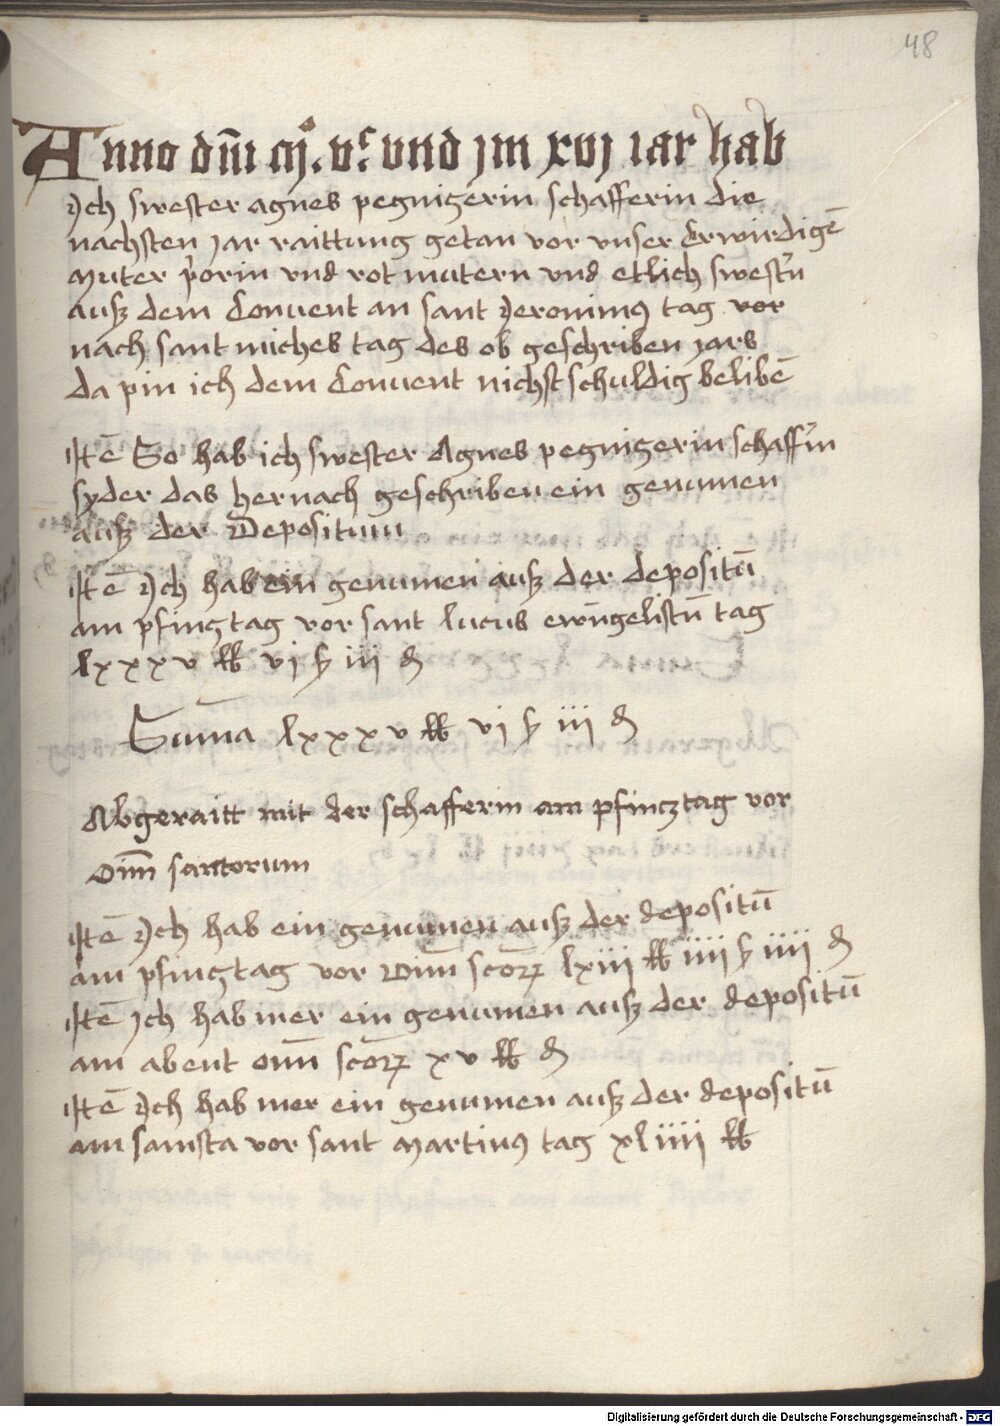 48
Anno dm̄ m°. vᶜ und jm xvj iar hab
Jch swester agnes pegnitzerin schafferin die
nachsten jar raittung getan vor unser Erwirdigē
Muter p̄orin vnd rot mutern vnd etlich swest'n
auß dem Conuent an sant Jeronimꝰ tag vor
nach sant miches tag des ob geschriben jars
da pin ich dem Conuent nichst schuldig belibē
Itē So hab ich swester Agnes pegnitzerin schaff'in
syder das hernach geschriben ein genumen
auß der Depositum
Itē Jch hab ein genumen auß der depositū
am pfingtag vor sant lucas ewāgelistū tag
lxxxv ℔ vj ß iij ₰
Suma lxxxv ℔ vj ß iij ₰
Abgeraitt mit der schafferin am pfincztag vor
oīm santorum
Itē Jch hab ein genumen auß der depositū
am pfingtag vor oīm scorꝝ lxiii ℔ iiii ß iiii ₰
Itē Jch hab mer ein genumen auß der depositū
am abent oīm scorꝝ xv ℔ ₰
Itē Jch hab mer ein genumen auß der depositū
am samsta vor sant Martinꝰ tag xliiii ℔
Digitalisierung gefördert durch die Deutsche Forschungsgemeinschaft - DFG